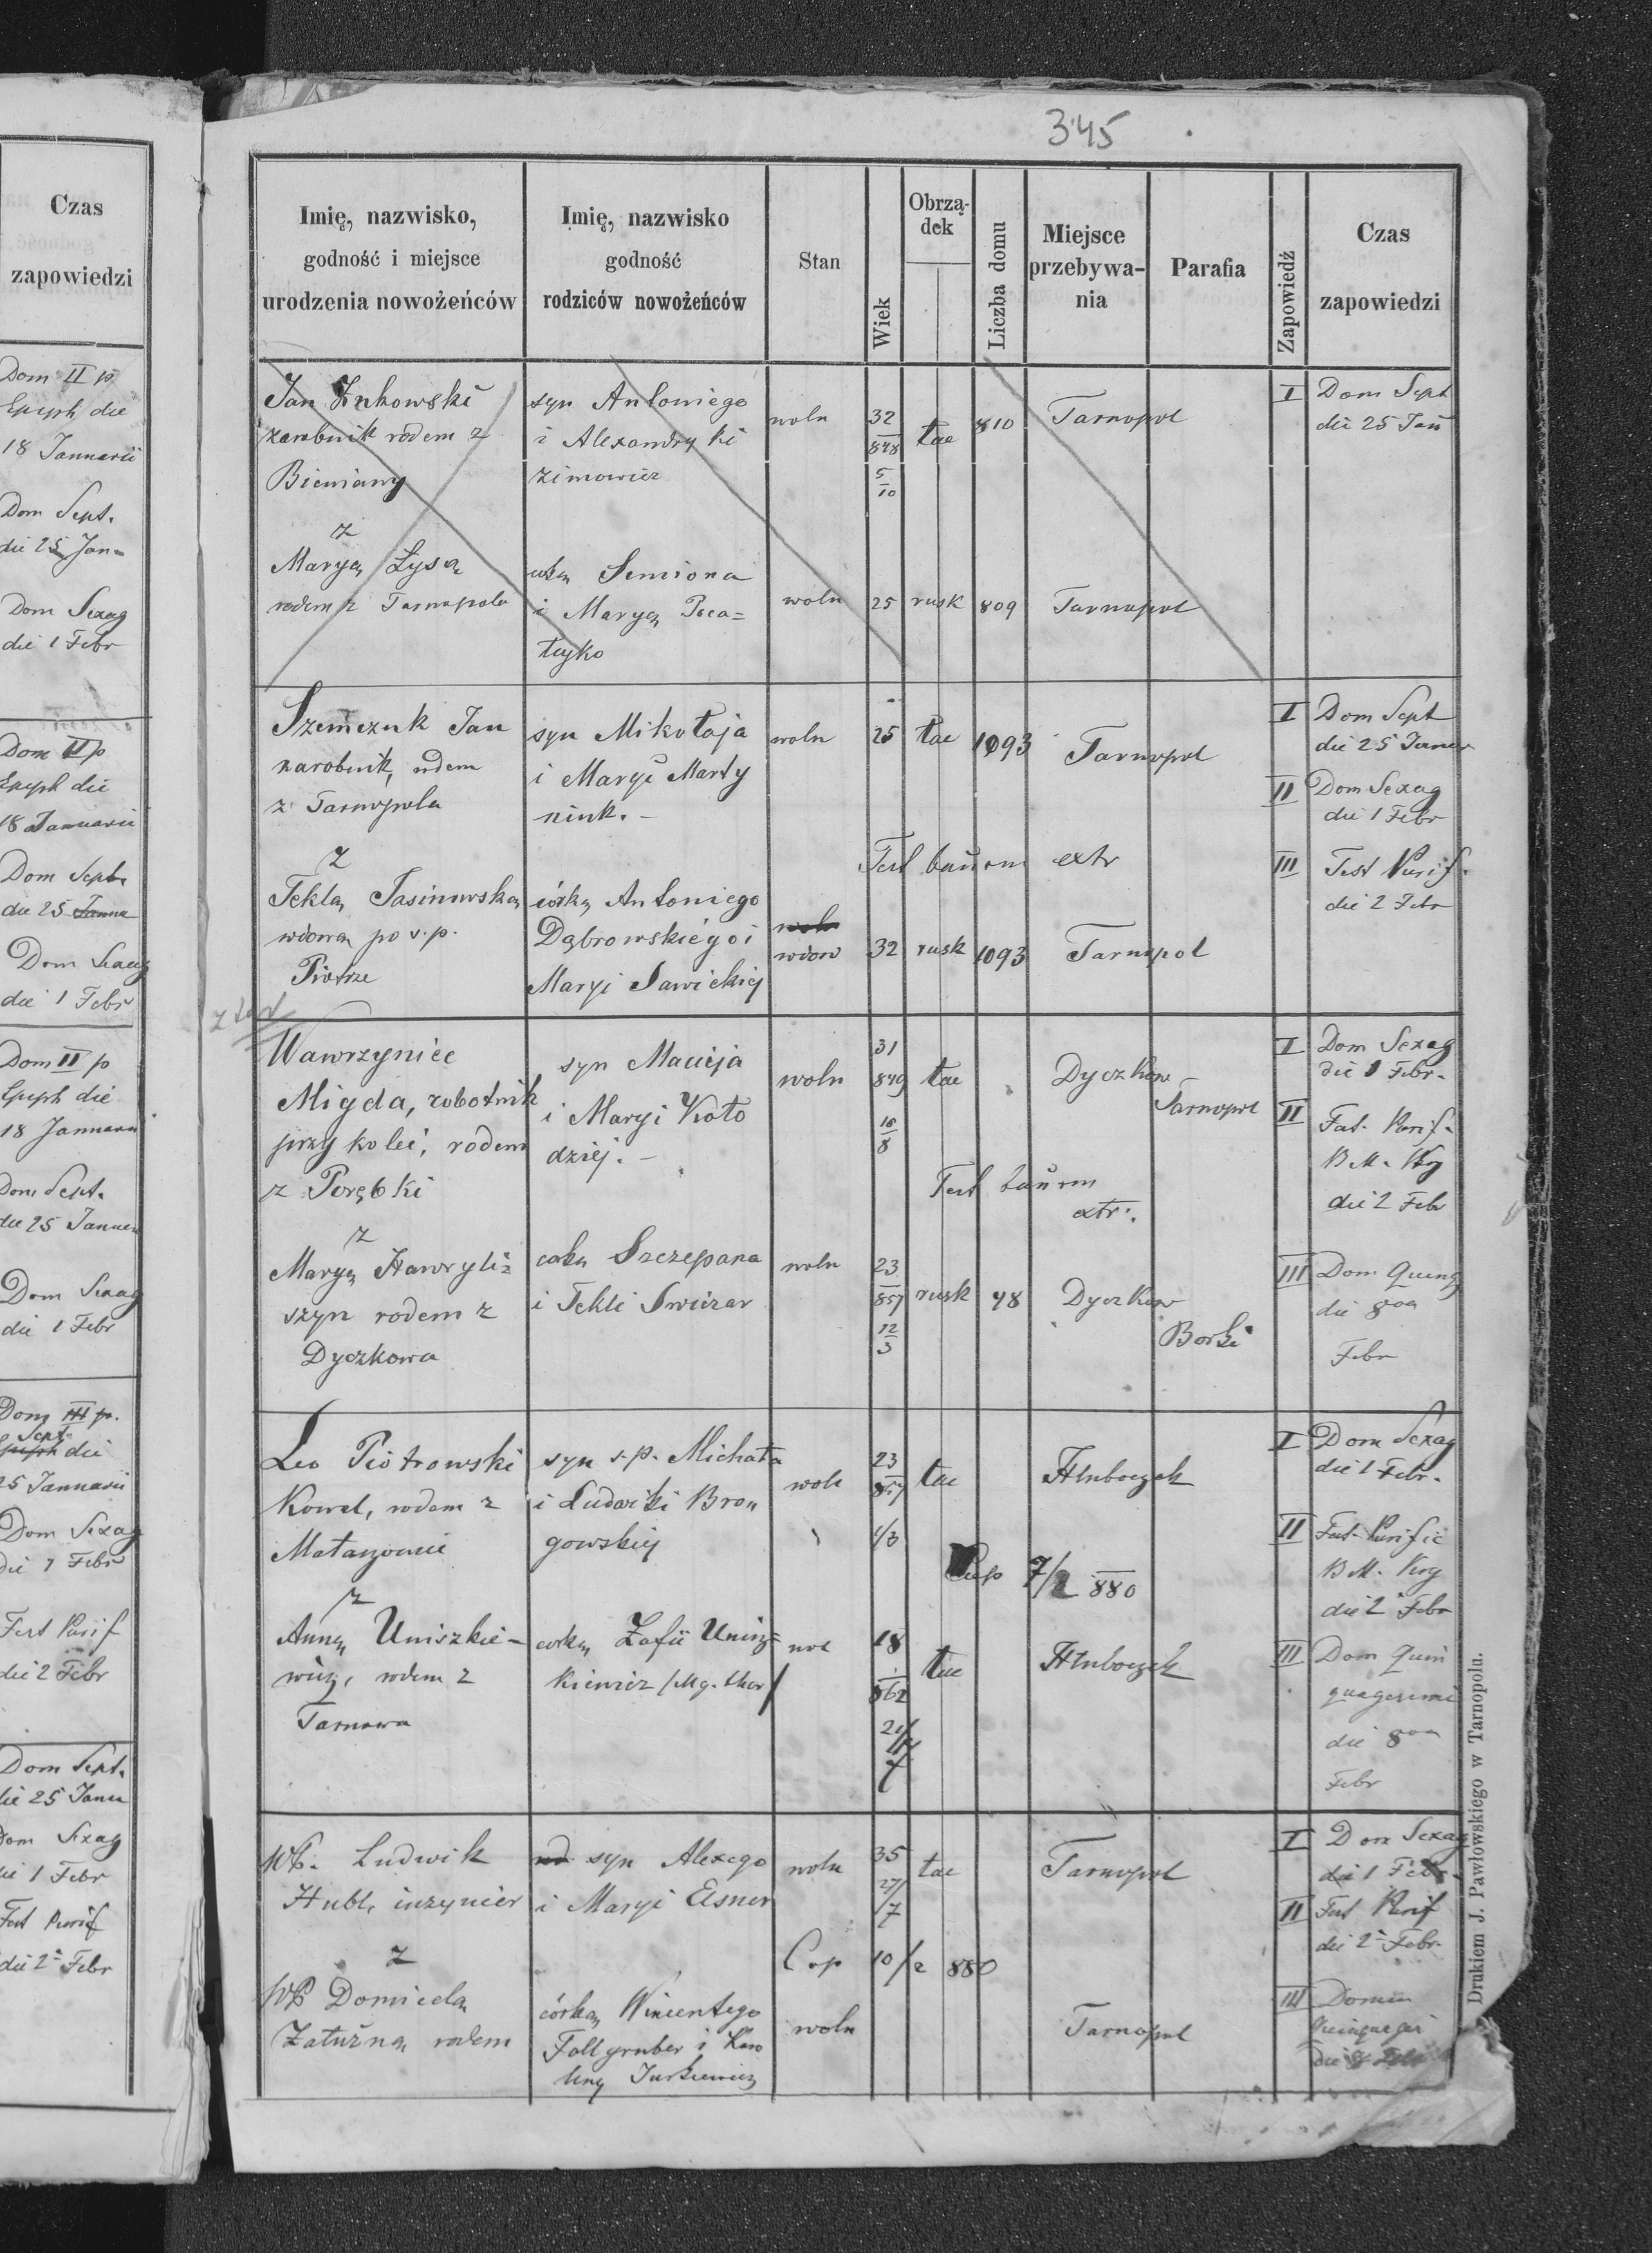 Czas
zapowiedzi
Dom II p
Epiph die
18 Januarii
Dom Sept.
die 25 Jan=
Dom Sexag
die 1 Febr
Dom II p
Epiph die
18 Januarii
Dom Sept.
die 25 Janua
Dom Sexag
die 1 Febr
Dom II p
Epiph die
18 Januarii
Dom Sept.
die 25 Januar
Dom Sexag
die 1 Febr
Dom III p.
Sept.
Epiph die
25 Januarii
Dom Sexag
die 1 Febr
Fest Purif
die 2 Febr
Dom Sept.
die 25 Janu
Dom Sexag
die 1 Febr
Fest Purif
die 2 Febr
345
Imię, nazwisko,
godność i miejsce
urodzenia nowożeńców
Imię, nazwisko
godność
rodziców nowożeńców
Stan
Wiek
Obrzą-
dek
Liczba domu
Miejsce
przebywa-
nia
Parafia
Zapowiedź
Czas
zapowiedzi
Jan
zarobnik rodem z
Bieniawy
syn Antoniego
i Alexandry Ki
zimowicz
woln
32
848
5
10
łac
810
Tarnopol
I Dom Sept
die 25 Jan
z
Maryą Łysą
rodem z Tarnopola
Semiona
i Maryą
woln
25
rusk
809
Tarnopol
Szemczuk Jan
zarobnik, rodem
z Tarnopola
syn Mikołaja
i Maryi Marty
niuk. -
woln
25
łac
1093
Tarnopol
I Dom Sept
die 25 Januar
II Dom Sexag
die 1 Febr
III Fest Purif.
die 2 Febr
Test bannorum extr
z
Teklą Jasinowską
wdową po s.p.
Piotrze
córką Antoniego
Dąbrowskiego i
Maryi Sawickiej
woln
wdow
32
rusk
1093
Tarnopol
Wawrzyniec
Migda, robotnik
przy kolei, rodem
z Porębki
syn Macieja
i Maryi Koło
dziej. -
woln
31
849
10
8
łac
Dyczków
Tarnopol
I Dom Sexag
die 1 Febr.
II Fest. Purif.
B.M. Virg
die 2 Febr
Test bannorum
extr.
z
Maryą Hawryli=
szyn rodem z
Dyczkowa
córką Szczepana
i Tekli Swiżar
woln
23
857
12
3
rusk
48
Dyczków
Borki
III Dom Quinq
die 8va
Febr
Leo Piotrowski
Kowal, rodem z
syn s.p. Michała
i Ludwiki Bron
gowskiej
woln
23
łac
Hłuboczek
I Dom Sexag
die 1 Febr.
II Fest. Purific
B.M. Virg
die 2 Febr
Cop 7/2 880
z
Anną Uniszkie-
wicz, rodem z
Tarnowa
córką Zofii Unisz=
kiewicz
wol
18
862
21
łac
Hłuboczek
III Dom Quin
quagesimi
die 8va
Febr
WP. Ludwik
Hubl, inżynier
syn Alexego
i Maryi Elsner
woln
35
27/
7
łac
Tarnopol
I Dom Sexag
die 1 Febr.
II Fest Purif
die 2 Febr.
Cop 10/2 880
z
WP Domicelą
Zatużną rodem
córką Wincentego
Follgruber i Karo
liny Jurkiewicz
woln
Tarnopol
III Domin
Quinquagesi
die 8 Febr
Drukiem J. Pawłowskiego w Tarnopolu.